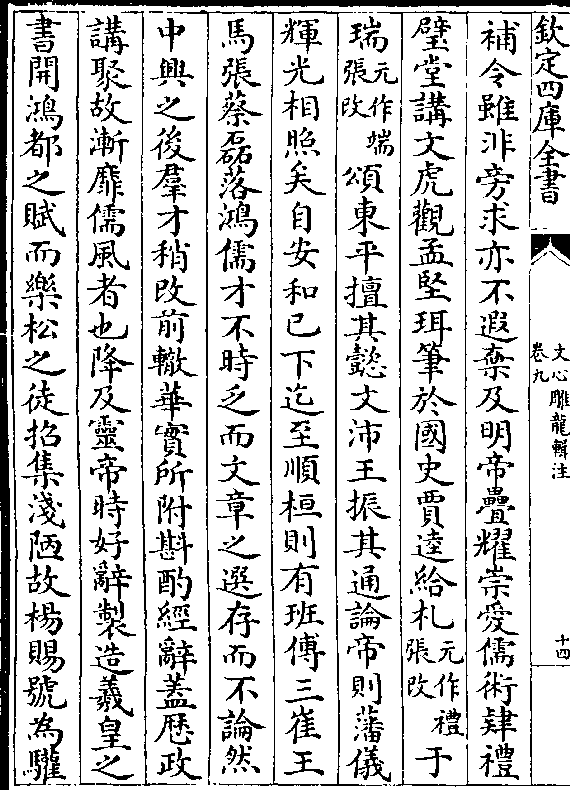 欽定四庫全書
文心雕龍輯注
卷九
十四
補令雖非旁求亦不遐棄及明帝疊耀崇愛儒術肄禮
璧堂講文虎觀孟堅珥筆於國史賈逵給札元作禮張改于
瑞元作端張改頌東平擅其懿文沛王振其通論帝則藩儀
輝光相照矣自安和已下迄至順桓則有班傅三崔王
馬張蔡磊落鴻儒才不時乏而文章之選存而不論然
中興之後羣才稍改前轍華實所附斟酌經辭蓋歷政
講聚故漸靡儒風者也降及靈帝時好辭製造羲皇之
書開鴻都之賦而樂松之徒招集淺陋故楊賜號為驩